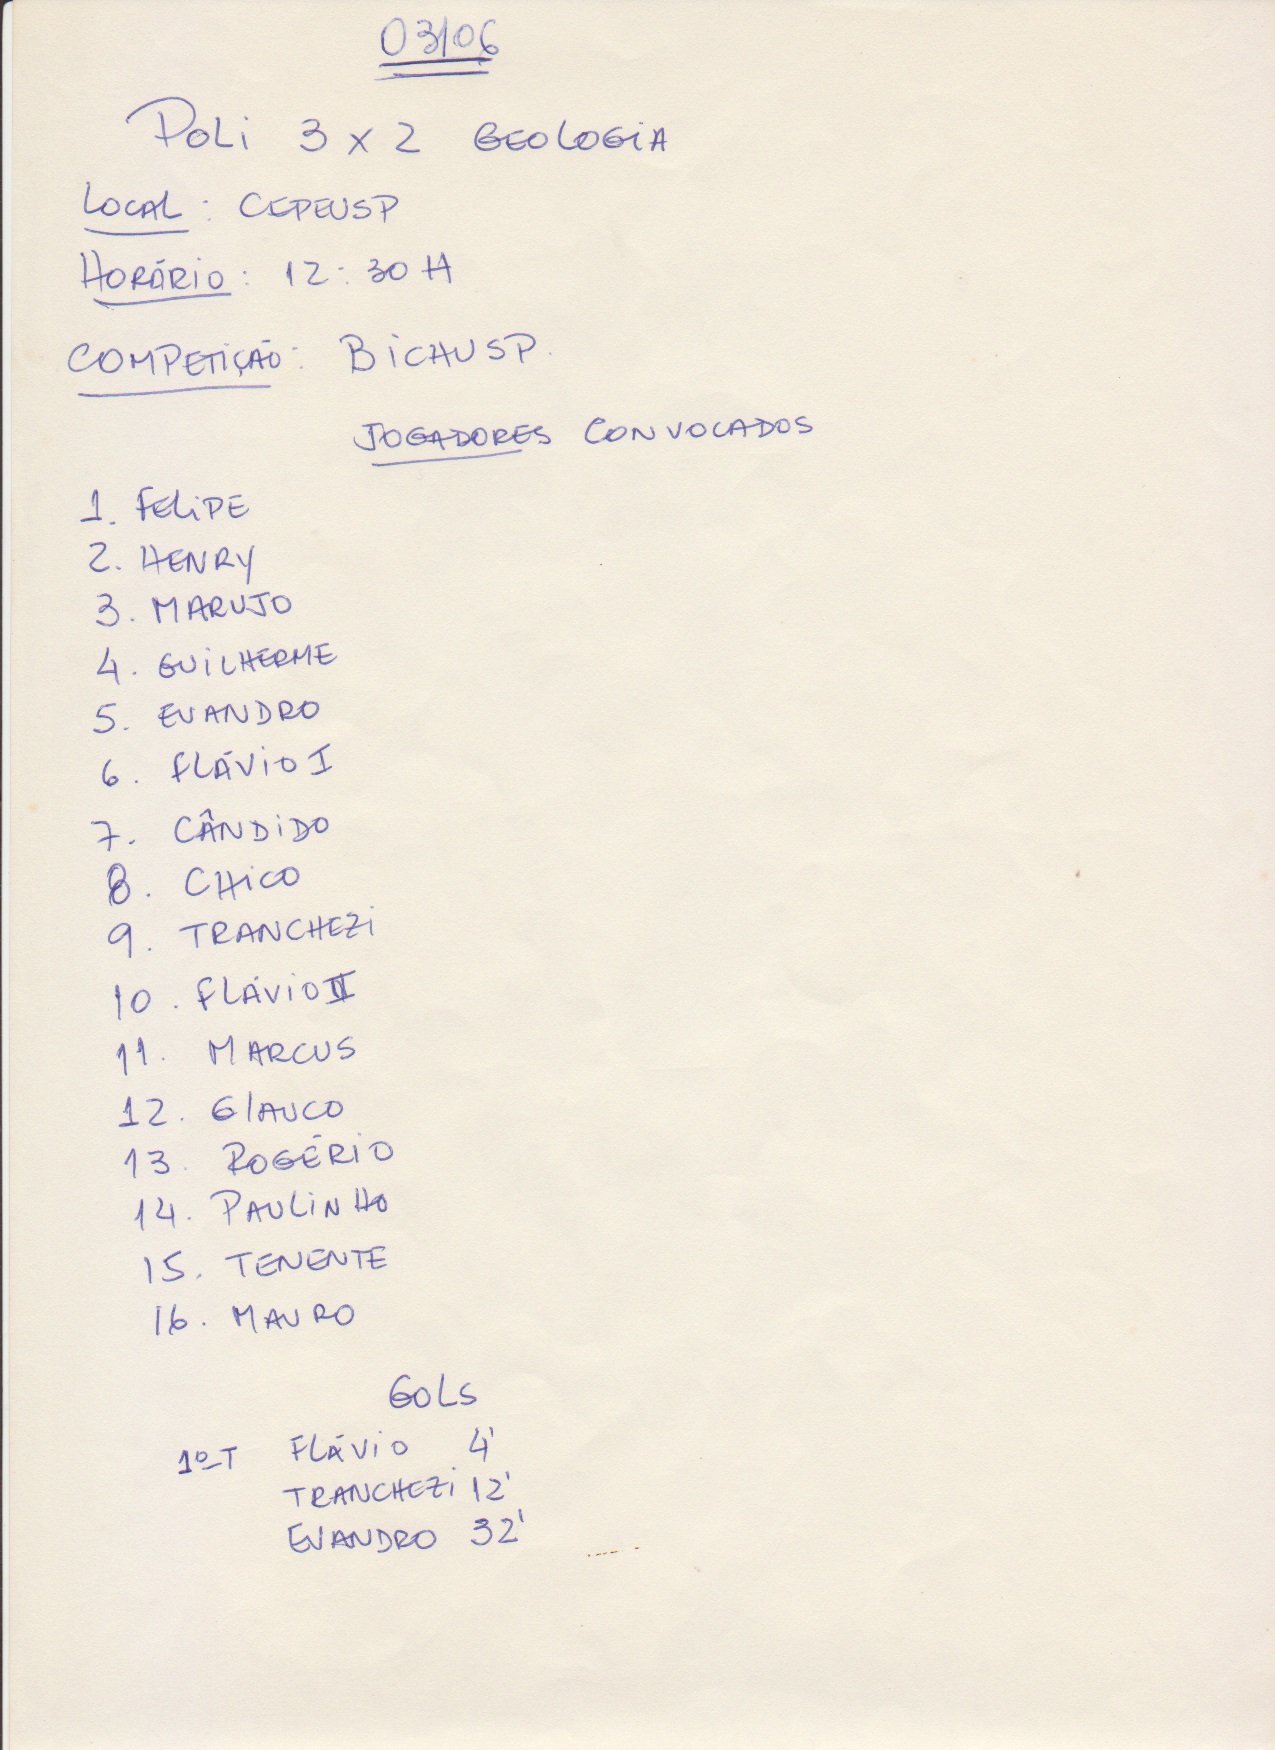 03/06
POLI 3 X 2 GEOLOGIA
LOCAL: CEPEUSP
HORÁRIO: 12:30 H
COMPETIÇÃO: BICHUSP.
JOGADORES CONVOCADOS
1. FELIPE
2. HENRY
3. MARUJO
4. GUILHERME
5. EVANDRO
6. FLÁVIO I
7. CÂNDIDO
8. CHICO
9. TRANCHEZI
10. FLÁVIO II
11. MARCUS
12. GLAUCO
13. ROGÉRIO
14. PAULINHO
15. TENENTE
16. MAURO
GOLS
1º T FLÁVIO 4'
TRANCHEZI 12'
EVANDRO 32'